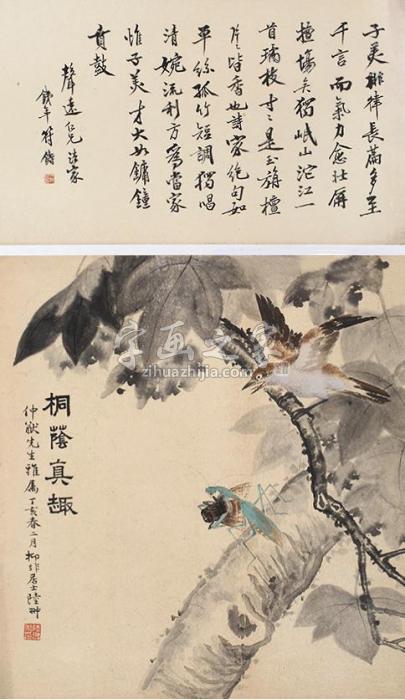 子美排律長篇多至
千言而氣力愈壯
擅場矣獨岷山沱江一
首璚枝寸寸是玉旃檀
片片皆香也詩家絶句如
單絲孤竹短調獨唱
清婉流利方為當家
惟子美才大如鏞鐘
賁鼓
聲遠仁兄法家
符鑄
字画之家
zihuazhijia.com
桐蔭真趣
先生雅屬丁亥春二月抑非居士陸翀